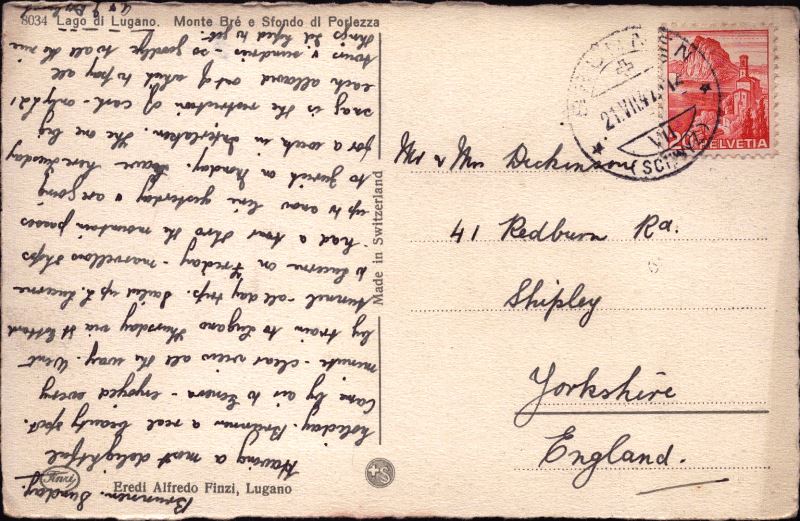 8034 Lago di Lugano. Monte Brè e Sfondo di Porlezza
Brunnen. Sunday.
Having a most delightful
holiday. Brunnen a real beauty spot.
Came by air to Geneva - enjoyed every
minute - clear views all the way. Went
by train to Lugano Thursday via St Gottard
tunnel - all day trip. Sailed up L. Lucerne
to Lucerne on Friday - marvellous shops
- had a tour thro the mountain passes
up to snow line yesterday & are going
to Zurich on Monday. Leave here Tuesday
for a week in Interlaken. The one big
snag is the restriction of cash - only £21
each allowed out of which to pay all
tours & sundries - so goodbye to all the nice
things I'd hoped to get.
Made in Switzerland
Finzi
Eredi Alfredo Finzi, Lugano
BRUNNEN
21.VII.47
(SCHWYZ)
HELVETIA
Mr & Mrs Dickinson
41 Redburn Rd.
Shipley
Yorkshire
England.